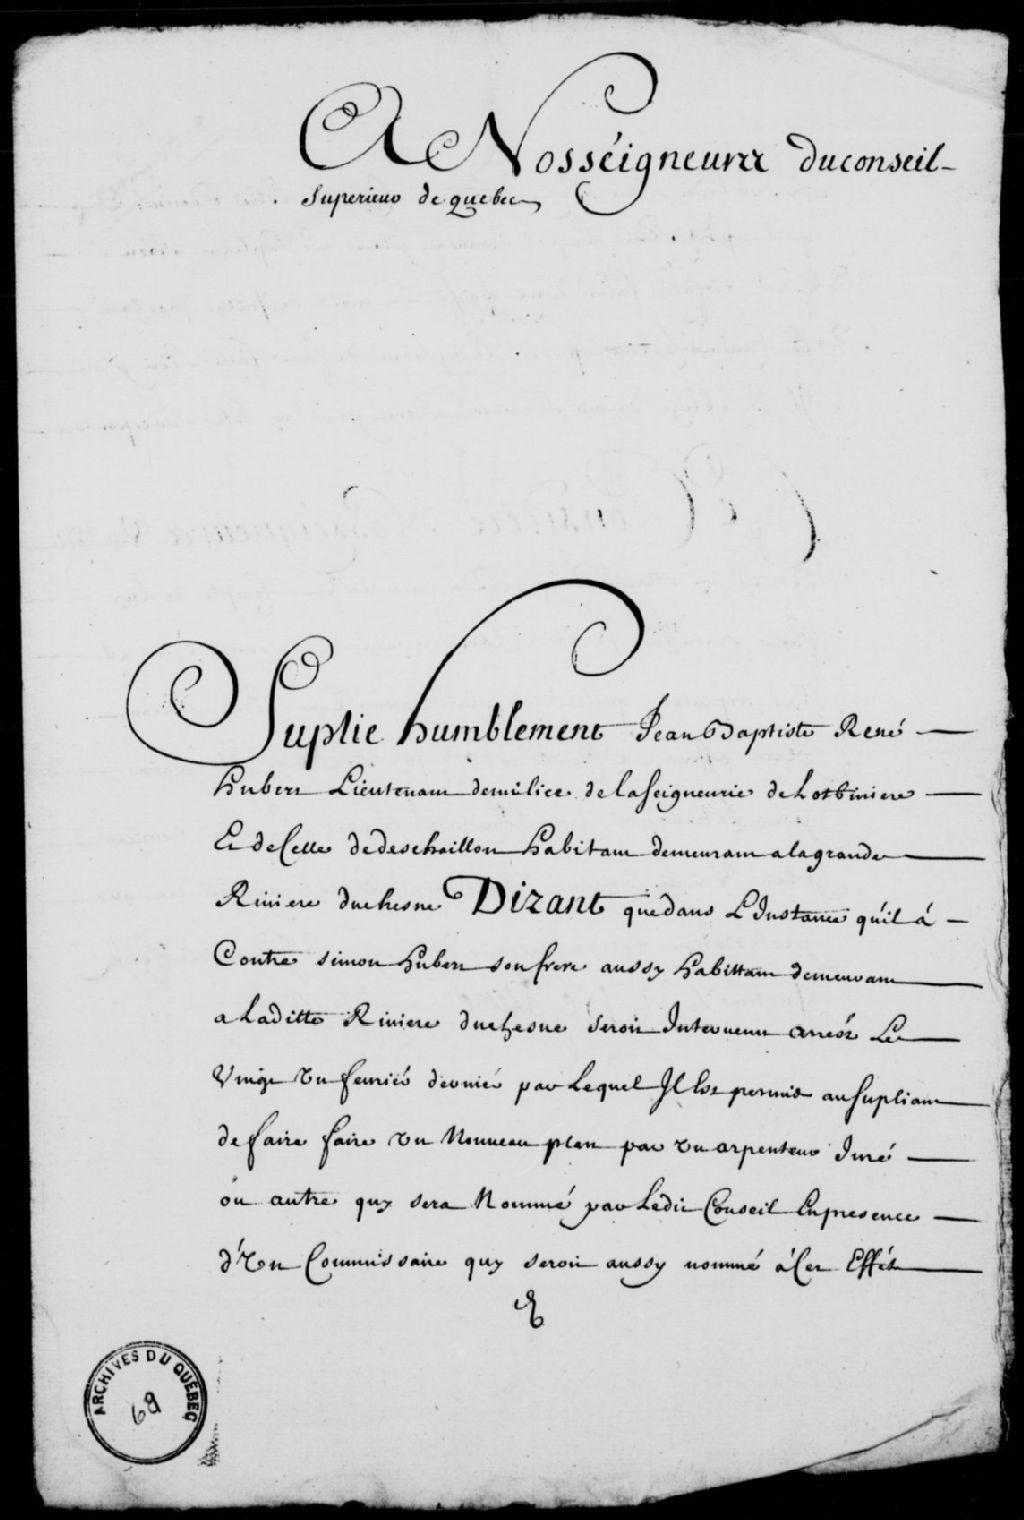 A Nosseigneurs du conseil
superieur de quebec
Suplie humblement Jean Baptiste René
hubert Lieutenant de milice de la seigneurie de Lotbiniere
Et de Celle de deschaillon habitant demeurant a la grande
Riviere duchesne Dizant que dans L'Instance qu'il á
Contre simon hubert son frere aussy habittant demeurant
a Laditte Riviere duchesne seroit Intervenu arrest Le
Vingt un fevrié dernié par Lequel Il Est permis au supliant
de faire faire un Nouveau plan par un arpenteur Juré
ou autre quy sera Nommé par Ledit Conseil En presence
d'un Commissaire quy seroit aussy nommé á Cet Effét
ARCHIVES DU QUÉBEC